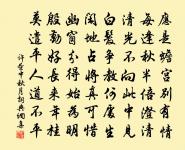 應是蟾宮別有情
每逢秋半倍澄清
清光不向此中見
白髮爭教何處生
閑地占將真可惜
幽窗分得始為明
殷勤好長來年桂
莫遣平人道不平
許晝中秋月詞典網書